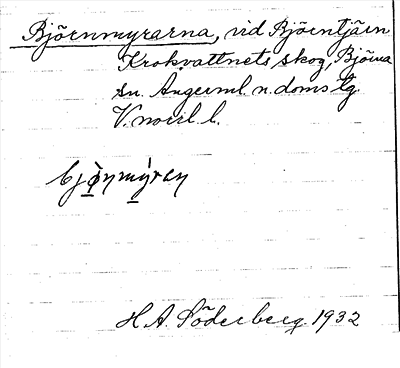 Björnmyrarna, vid Björntjärn
Krokvattnets skog, Björna
sn. Ångerml. n. doms lg.
V.norrl. l.
bjònmýren
H. A. Söderberg 1932